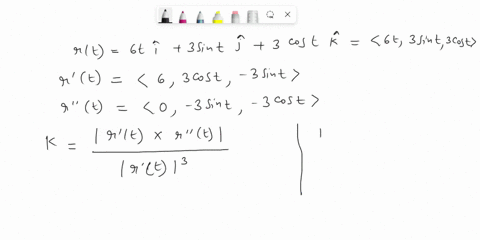 r(t) = 6t î + 3sint ĵ + 3 cost k̂ = <6t, 3sint, 3cost>
r'(t) = < 6, 3cost, -3sint>
r''(t) = < 0, -3sint, -3cost >
K = | r'(t) × r''(t) | / | r'(t) |³